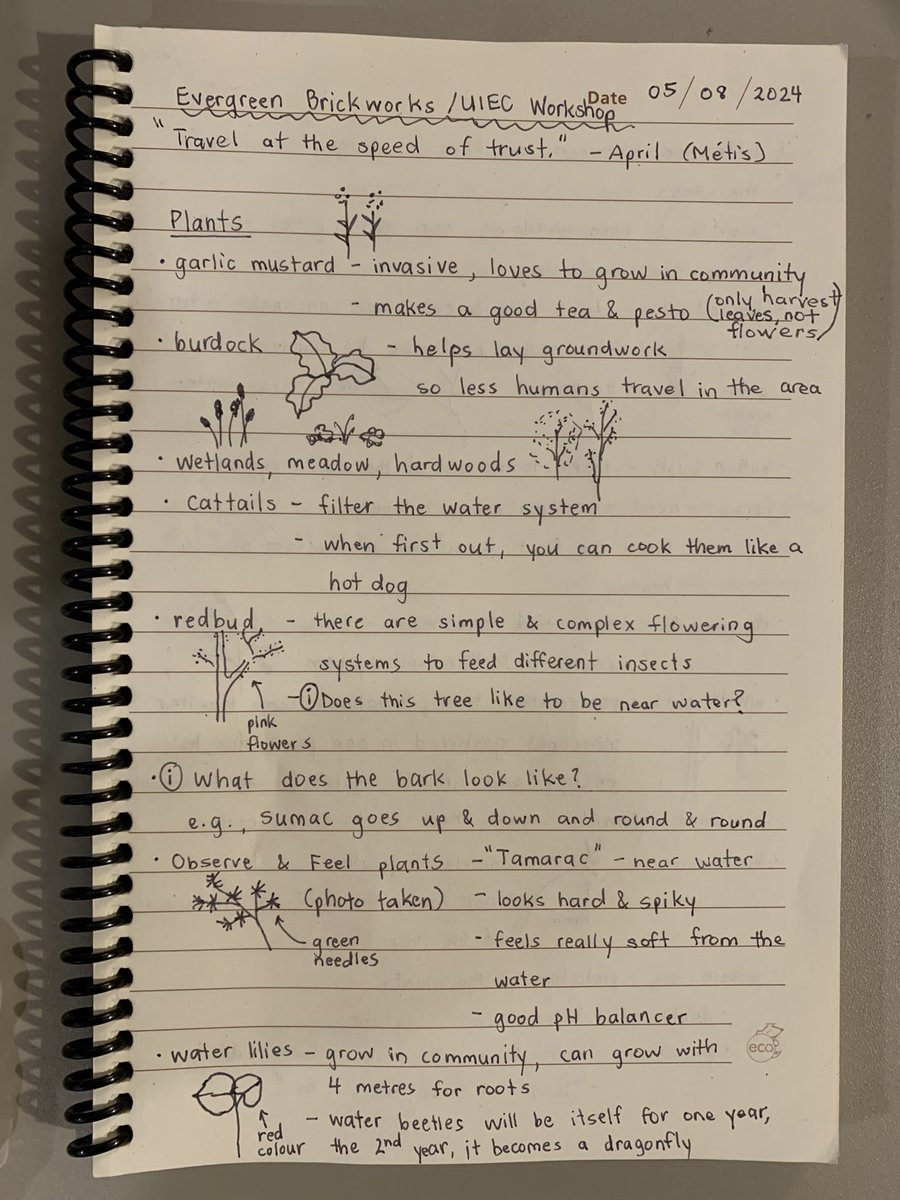 Date 05/08/2024
Evergreen Brickworks /UIEC Workshop
"Travel at the speed of trust." - April (Métis)
Plants
• garlic mustard - invasive, loves to grow in community
- makes a good tea & pesto (only harvest
leaves, not
flowers)
• burdock - helps lay groundwork
so less humans travel in the area
• wetlands, meadow, hardwoods
• cattails - filter the water system
- when first out, you can cook them like a
hot dog
• redbud - there are simple & complex flowering
systems to feed different insects
- i Does this tree like to be near water?
pink
flowers
• i What does the bark look like?
e.g., sumac goes up & down and round & round
• Observe & Feel plants - "Tamarac" - near water
(photo taken) - looks hard & spiky
green
needles
- feels really soft from the
water
- good pH balancer
• water lilies - grow in community, can grow with
eco
4 metres for roots
red
colour
- water beetles will be itself for one year,
the 2nd year, it becomes a dragonfly